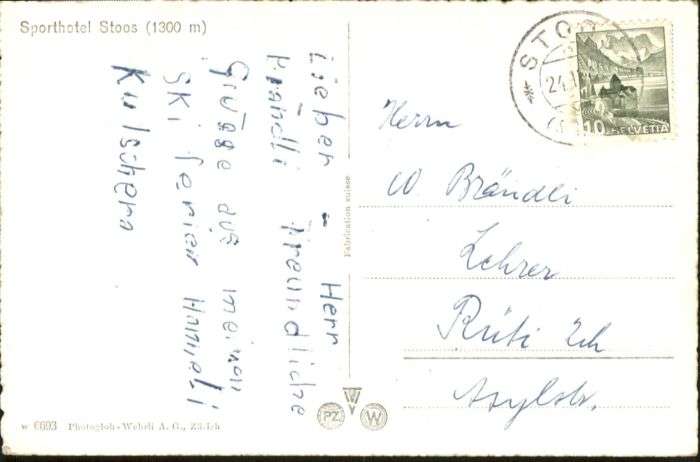 Sporthotel Stoos (1300 m)
Lieber Herr
Brändli Freundliche
Grüsse aus meinen
Ski ferien
STOO
24.
10 HELVETIA
Herrn
W Brändli
Lehrer
Rüti Zch
Asylstr.
Fabrication suisse
PZ W
w 6093 Photoglob-Wehrli A. G., Zürich